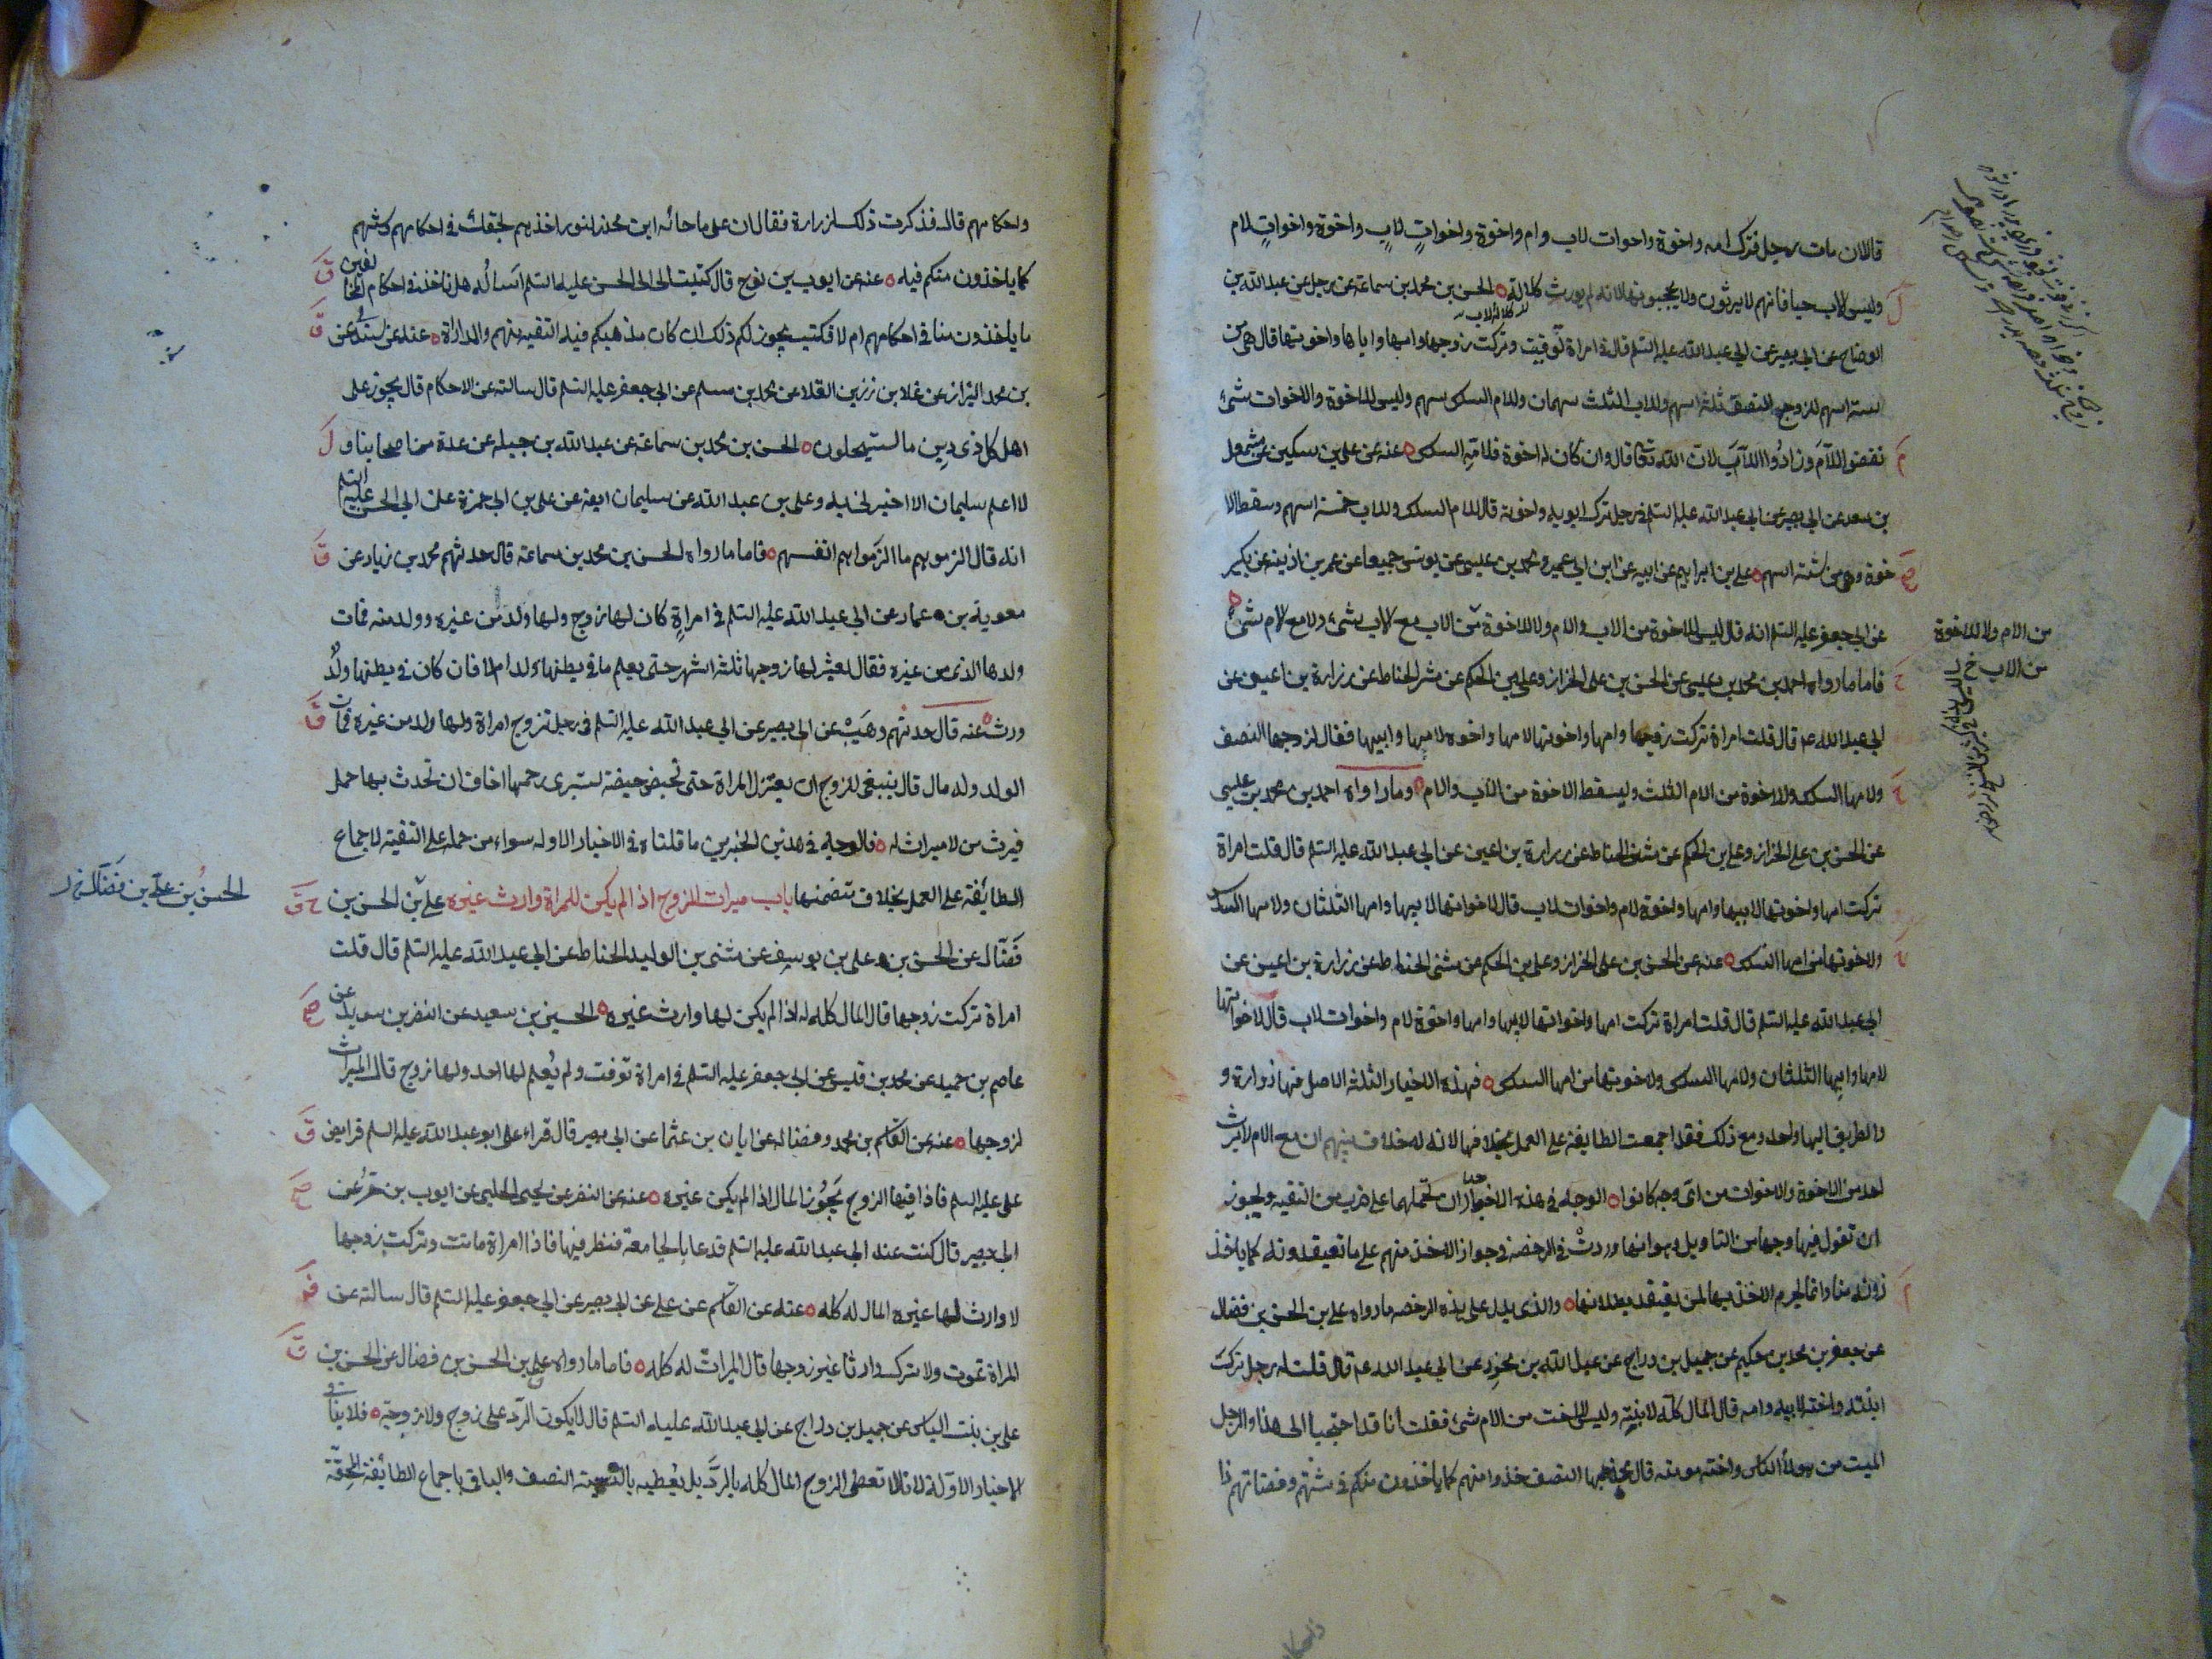 قالا ان مات رجل فترك امه واخوة واخوات لاب وام واخوة واخوات لاب واخوة واخوات لام
وليس الاب حيا فانهم لا يرثون ولا يحجبونها لانه لم يورث كلالة الحسن بن محمد بن سماعة عن رجل عن عبد الله بن
الوضاح عن ابي بصير عن ابي عبد الله عليه السلم قال في امراة توفيت وتركت زوجها وامها واباها واخوتها قال هي من
ستة اسهم للزوج النصف ثلثة اسهم وللاب الثلث سهمان وللام السدس سهم وليس للاخوة والاخوات شئ
نقصوا الام وزادوا الاب لان الله تعا قال وان كان له اخوة فلامه السدس عنه عن علي بن سكين عن مشمعل
بن سعد عن ابي بصير عن ابي عبد الله عليه السلم في رجل ترك ابويه واخوته قال للام السدس وللاب خمسة اسهم وسقط الا
خوة وهي من ستة اسهم علي بن ابراهيم عن ابيه عن ابن ابي عمير ومحمد بن عيسى عن يونس جميعا عن عمر بن اذينه عن بكير
عن ابي جعفر عليه السلم انه قال ليس للاخوة من الاب والام ولا للاخوة من الاب مع الاب شئ ولا مع الام شئ
من الام ولا للاخوة
من الاب خ
فاما ما رواه احمد بن محمد بن عيسى عن الحسن بن على الخزاز وعلى بن الحكم عن مثنى الحناط عن زرارة بن اعين عن
ابي عبد الله عه قال قلت امراة تركت زوجها وامها واخوتها لامها واخوه لامها وابيها فقال لزوجها النصف
ولامها السدس وللاخوة من الام الثلث وليسقط الاخوة من الاب والام وما رواه احمد بن محمد بن عيسى
عن الحسن بن علي الخزاز وعلي بن الحكم عن مثنى الحناط عن زرارة بن اعين عن ابي عبد الله عليه السلم قال قلت امراة
تركت امها واخوتها لابيها وامها واخوة لام واخوات لاب قال لاخواتها لابيها وامها الثلثان ولامها السدس
ولاخوتها من امها السدس عنه عن الحسن بن على الخزاز وعلى بن الحكم عن مثنى الحناط عن زرارة بن اعين عن
ابي عبد الله عليه السلم قال قلت امراة تركت امها واخواتها لابيها وامها واخوة لام واخوات لاب قال لاخواتها
لامها وابيها الثلثان ولامها السدس ولاخوتها من امها السدس فهذه الاخبار الثلثة الاصل فيها زرارة و
والطريق اليها واحد ومع ذلك فقد اجمعت الطايفة على العمل بخلافها لانه لا خلاف بينهم ان مع الام لا يرث
احد من الاخوة والاخوات من اي وجه كانوا الوجه في هذه الاخبار ان نحملها على ضرب من التقيه ويجوز
ان تقول فيها وجها من التاويل وهو انها وردت في الرخصة في جواز الاخذ منهم على ما تعيقدونه كما ياخذ
ونه منا وانما يحرم الاخذ بها لمن يعتقد بطلانها والذي يدل على هذه الرخصه ما رواه علي بن الحسن بن فضال
عن جعفر بن محمد بن حكيم عن جميل بن دراج عن عبد الله بن محرز عن ابي عبد الله عه قال قلت له رجل ترك
ابنته واخته لابيه وامه قال المال كله لابنته وليس للاخت من الاب والام شئ فقلت انا قد احتجنا الى هذا والرجل
الميت من هولاء الناس واخته مومنة قال فخذ لها النصف خذوا منهم كما ياخذون منكم في سنتهم وقضائهم
واحكامهم قال فذكرت ذلك لزرارة فقال ان على ما جاء به ابن محرز لنورا خذهم بحقك في احكامهم وسنتهم
كما ياخذون منكم فيه عنه عن ايوب بن نوح قال كتبت الى ابي الحسن عليه السلم اساله هل ناخذ في احكام المخالفين
ما ياخذون منا في احكامهم ام لا فكتب يجوز لكم ذلك ان كان مذهبكم فيه التقية منهم والمداراة عنه عن سندي عن
بن محمد البزاز عن علا بن رزين القلا عن محمد بن مسلم عن ابي جعفر عليه السلم قال سالته عن الاحكام قال يجوز على
اهل كل ذي دين ما يستحلون الحسن بن محمد بن سماعة عن عبد الله بن جبله عن عدة من اصحابنا و
لا اعلم سليمان الا اخبرني به وعلى بن عبد الله عن سليمان ايضه عن علي بن ابي حمزة عن ابي الحسن عليه السلم
انه قال الزموهم ما الزموا به انفسهم فاما ما رواه الحسن بن محمد بن سماعة قال حدثهم محمد بن زياد عن
معوية بن عمار عن ابي عبد الله عليه السلم في امراة كان لها زوج ولها ولد من غيره وولد منه فمات
ولدها الذي من غيره فقال يعتزلها زوجها ثلثة اشهر حتى يعلم ما في بطنها ولد ام لا فان كان في بطنها ولد
ورث عنه قال حدثهم وهيب عن ابي بصير عن ابي عبد الله عليه السلم في رجل تزوج امراة ولها ولد من غيره فمات
الولد وله مال قال ينبغي للزوج ان يعتزل المراة حتى تحيض حيضة تستبرى رحمها اخاف ان تحدث بها حمل
فيرث من لا ميراث له فالوجه في هذين الخبرين ما قلناه في الاخبار الاوله سواء من حمله على التقية لاجماع
الطايفة على العمل بخلاف متضمنها باب ميراث الزوج اذا لم يكن للمراة وارث غيره علي بن الحسن بن
الحسن بن علي بن فضال
فضال عن الحسن بن علي بن يوسف عن مثنى بن الوليد الحناط عن ابي عبد الله عليه السلم قال قلت
امراة تركت زوجها قال المال كله له اذا لم يكن لها وارث غيره الحسين بن سعيد عن النضر بن سويد عن
عاصم بن حميد عن محمد بن قيس عن ابي جعفر عليه السلم في امراة توفت ولم يعلم لها احد ولها زوج قال الميراث
لزوجها عنه عن القسم بن محمد وفضاله عن ابان بن عثمان عن ابي بصير قال قراء على ابو عبد الله عليه السلم فرايض
على عليه السلم فاذا فيها الزوج يجوز المال اذا لم يكن غيره عنه عن النضر عن يحيى الحلبي عن ايوب بن حر عن
ابي بصير قال كنت عند ابي عبد الله عليه السلم فدعا بالجامعة فنظر فيها فاذا امراة ماتت وتركت زوجها
لا وارث لها غيره المال له كله عنه عن القسم عن على عن ابي بصير عن ابي جعفر عليه السلم قال سالته عن
المراة تموت ولا تترك وارثا غير زوجها قال الميراث له كله فاما ما رواه علي بن الحسن بن فضال عن الحسن بن
علي بن بنت الياس عن جميل بن دراج عن ابي عبد الله عليه السلم قال لا يكون الرد على زوج ولا زوجه فلا ينافي
الاخبار الاولة لانا لا تعطى الزوج المال كله بالرد بل يعطيه بالتسمية النصف والباقي باجماع الطايفة المحقة